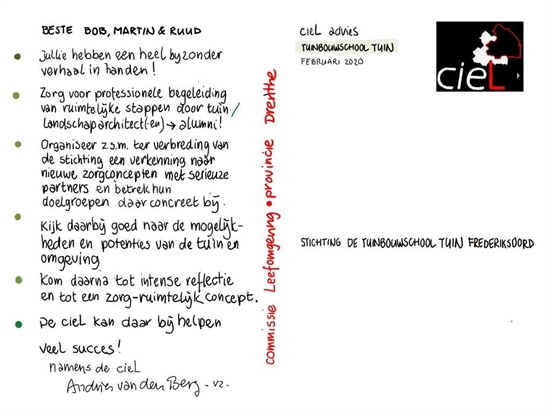 BESTE BOB, MARTIN & RUUD
Jullie hebben een heel byzonder
verhaal in handen!
Zorg voor professionele begeleiding
van ruimtelijke stappen door tuin/
landschaparchitect(-en) → alumni!
Organiseer z.s.m. ter verbreding van
de stichting een verkenning naar
nieuwe zorgconcepten met serieuze
partners en betrek hun
doelgroepen daar concreet bij.
Kijk daarbij goed naar de mogelijk-
heden en potenties van de tuin en
omgeving
Kom daarna tot intense reflectie
en tot een zorg-ruimtelijk concept.
De ciel kan daar bij helpen
veel succes!
namens de ciel
Andries van den Berg - vz.
commissie Leefomgeving • provincie Drenthe
cieL advies
TUINBOUWSCHOOL TUIN
FEBRUARI 2020
cieL
STICHTING DE TUINBOUWSCHOOL TUIN FREDERIKSOORD